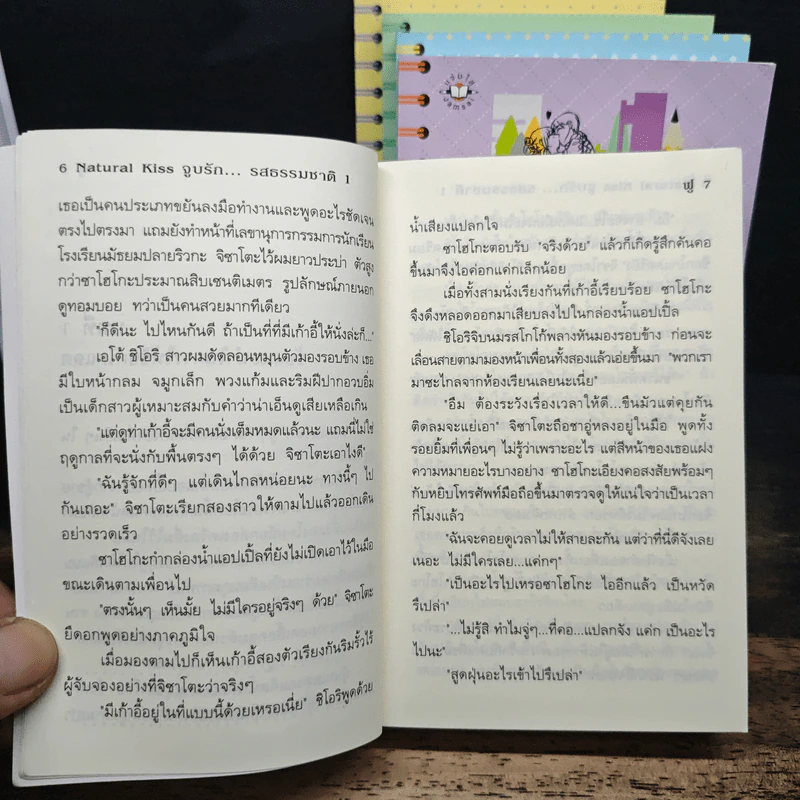 6 Natural Kiss จูบรัก... รสธรรมชาติ 1
เธอเป็นคนประเภทขยันลงมือทำงานและพูดอะไรชัดเจน
ตรงไปตรงมา แถมยังทำหน้าที่เลขานุการกรรมการนักเรียน
โรงเรียนมัธยมปลายริวกะ จิซาโตะไว้ผมยาวประบ่า ตัวสูง
กว่าซาโฮโกะประมาณสิบเซนติเมตร รูปลักษณ์ภายนอก
ดูทอมบอย ทว่าเป็นคนสวยมากทีเดียว
"ก็ดีนะ ไปไหนกันดี ถ้าเป็นที่ที่มีเก้าอี้ให้นั่งล่ะก็..."
เอโต้ ชิโอริ สาวผมดัดลอนหมุนตัวมองรอบข้าง เธอ
มีใบหน้ากลม จมูกเล็ก พวงแก้มและริมฝีปากอวบอิ่ม
เป็นเด็กสาวผู้เหมาะสมกับคำว่าน่าเอ็นดูเสียเหลือเกิน
"แต่ดูท่าเก้าอี้จะมีคนนั่งเต็มหมดแล้วนะ แถมนี่ไม่ใช่
ฤดูกาลที่จะนั่งกับพื้นตรงๆ ได้ด้วย จิซาโตะเอาไงดี"
"ฉันรู้จักที่ดีๆ แต่เดินไกลหน่อยนะ ทางนี้ๆ ไป
กันเถอะ" จิซาโตะเรียกสองสาวให้ตามไปแล้วออกเดิน
อย่างรวดเร็ว
ซาโฮโกะกำกล่องน้ำแอปเปิ้ลที่ยังไม่เปิดเอาไว้ในมือ
ขณะเดินตามเพื่อนไป
"ตรงนั้นๆ เห็นมั้ย ไม่มีใครอยู่จริงๆ ด้วย" จิซาโตะ
ยืดอกพูดอย่างภาคภูมิใจ
เมื่อมองตามไปก็เห็นเก้าอี้สองตัวเรียงกันริมรั้วไร้
ผู้จับจองอย่างที่จิซาโตะว่าจริงๆ
"มีเก้าอี้อยู่ในที่แบบนี้ด้วยเหรอเนี่ย" ชิโอริพูดด้วย
ฟู 7
น้ำเสียงแปลกใจ
ซาโฮโกะตอบรับ "จริงด้วย" แล้วก็เกิดรู้สึกคันคอ
ขึ้นมาจึงไอค่อกแค่กเล็กน้อย
เมื่อทั้งสามนั่งเรียงกันที่เก้าอี้เรียบร้อย ซาโฮโกะ
จึงดึงหลอดออกมาเสียบลงไปในกล่องน้ำแอปเปิ้ล
ชิโอริจิบนมรสโกโก้พลางหันมองรอบข้าง ก่อนจะ
เลื่อนสายตามามองหน้าเพื่อนทั้งสองแล้วเอ่ยขึ้นมา "พวกเรา
มาซะไกลจากห้องเรียนเลยนะเนี่ย"
"อืม ต้องระวังเรื่องเวลาให้ดี...ขืนมัวแต่คุยกัน
ติดลมจะแย่เอา" จิซาโตะถือชาอู่หลงอยู่ในมือ พูดทั้ง
รอยยิ้มที่เพื่อนๆ ไม่รู้ว่าเพราะอะไร แต่สีหน้าของเธอแฝง
ความหมายอะไรบางอย่าง ซาโฮโกะเอียงคอสงสัยพร้อมๆ
กับหยิบโทรศัพท์มือถือขึ้นมาตรวจดูให้แน่ใจว่าเป็นเวลา
กี่โมงแล้ว
"ฉันจะคอยดูเวลาไม่ให้สายละกัน แต่ว่าที่นี่ดีจังเลย
เนอะ ไม่มีใครเลย...แค่กๆ"
"เป็นอะไรไปเหรอซาโฮโกะ ไออีกแล้ว เป็นหวัด
รึเปล่า"
"...ไม่รู้สิ ทำไมจู่ๆ...ที่คอ...แปลกจัง แค่ก เป็นอะไร
ไปนะ"
"สูดฝุ่นอะไรเข้าไปรึเปล่า"